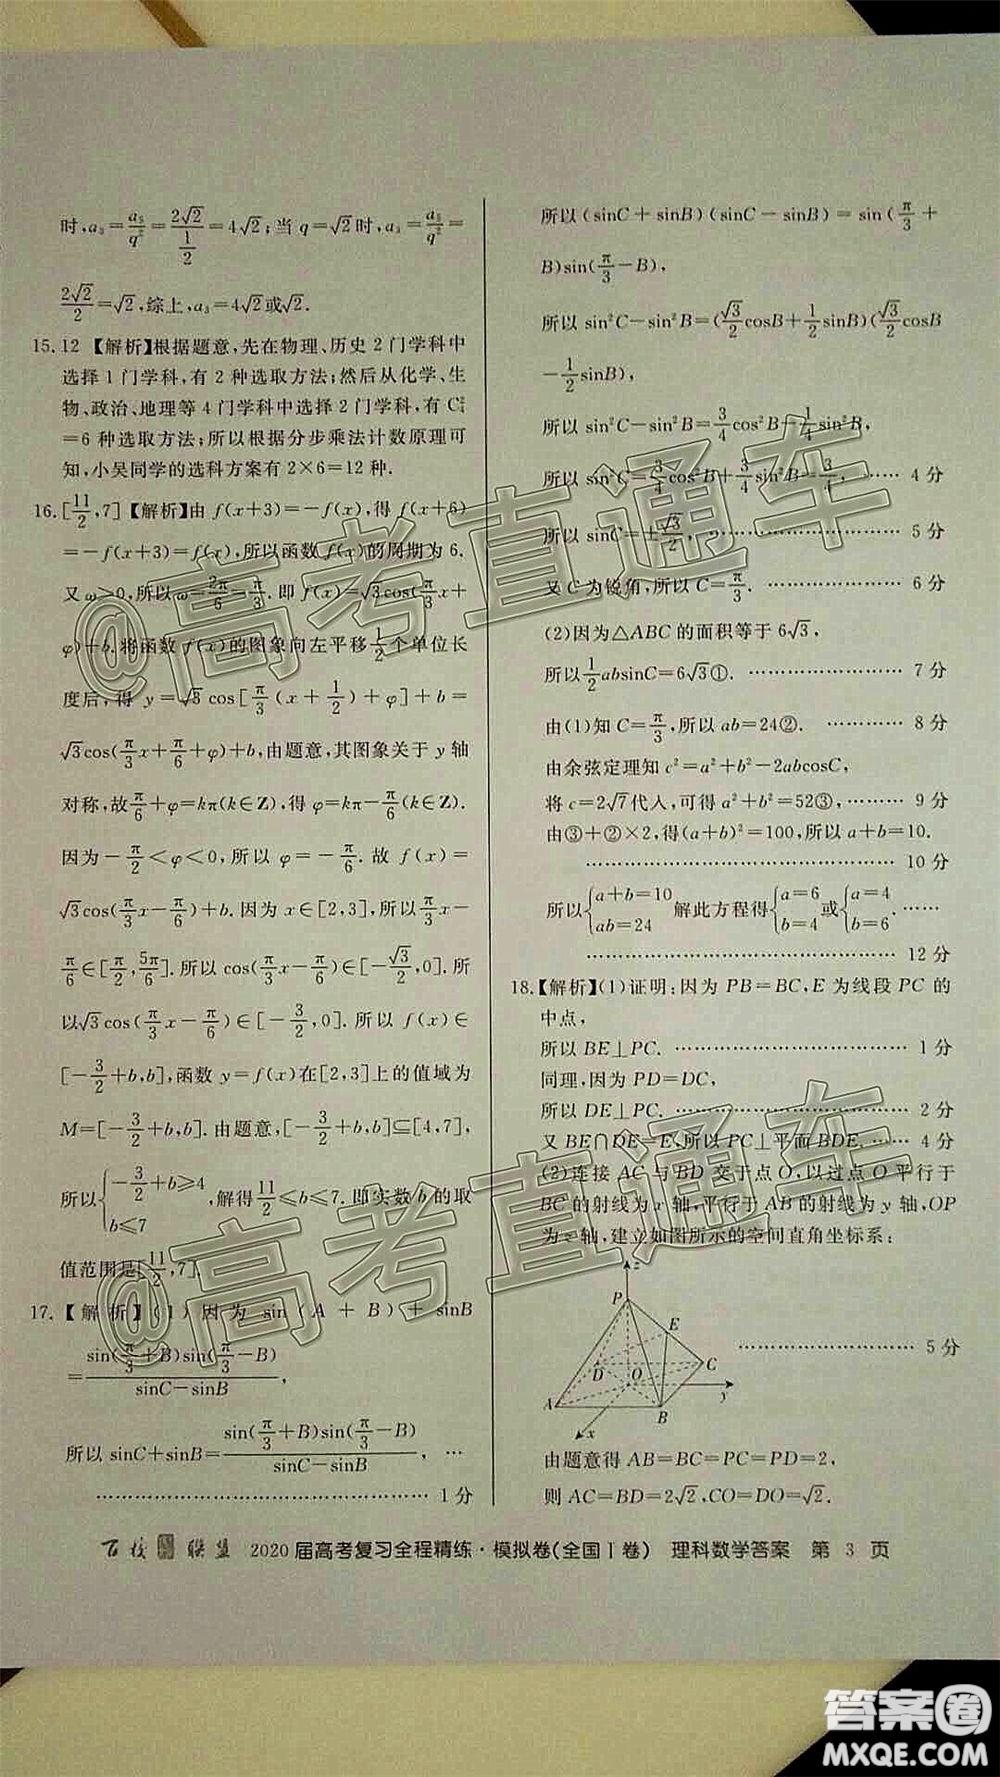 时,a₃=a₅/q²=2√2/(1/2)=4√2;当 q=√2时,a₃=a₅/q²=
2√2/2=√2,综上,a₃=4√2或√2.
15.12 【解析】根据题意,先在物理、历史 2 门学科中
选择 1 门学科,有 2 种选取方法;然后从化学、生
物、政治、地理等 4 门学科中选择 2 门学科,有 C₄²
=6 种选取方法;所以根据分步乘法计数原理可
知,小吴同学的选科方案有 2×6=12 种.
16.[11/2,7]【解析】由 f(x+3)=-f(x),得 f(x+6)
=-f(x+3)=f(x),所以函数 f(x)的周期为 6.
又 ω>0,所以ω=2π/6=π/3. 即 f(x)=√3cos(π/3x+
φ)+b.将函数 f(x)的图象向左平移1/2个单位长
度后,得 y=√3cos[π/3(x+1/2)+φ]+b=
√3cos(π/3x+π/6+φ)+b,由题意,其图象关于 y 轴
对称,故π/6+φ=kπ(k∈Z),得 φ=kπ-π/6(k∈Z).
因为-π/2<φ<0,所以 φ=-π/6. 故 f(x)=
√3cos(π/3x-π/6)+b. 因为 x∈[2,3],所以π/3x-
π/6∈[π/2,5π/6].所以 cos(π/3x-π/6)∈[-√3/2,0].所
以√3cos(π/3x-π/6)∈[-3/2,0].所以 f(x)∈
[-3/2+b,b],函数 y=f(x)在[2,3]上的值域为
M=[-3/2+b,b].由题意,[-3/2+b,b]⊆[4,7],
所以{-3/2+b≥4 b≤7,解得11/2≤b≤7.即实数 b 的取
值范围是[11/2,7].
17.【解析】(1)因为 sin(A+B)+sinB
=sin(π/3+B)sin(π/3-B)/(sinC-sinB),
所以 sinC+sinB=sin(π/3+B)sin(π/3-B)/(sinC-sinB), …
………………………………………… 1 分
所以(sinC+sinB)(sinC-sinB)=sin(π/3+
B)sin(π/3-B),
所以 sin²C-sin²B=(√3/2cosB+1/2sinB)(√3/2cosB
-1/2sinB),
所以 sin²C-sin²B=3/4cos²B-1/4sin²B,
所以 sin²C=3/4cos²B+3/4sin²B=3/4, ……… 4 分
所以 sinC=±√3/2, ………………………… 5 分
又 C 为锐角,所以 C=π/3. ……………… 6 分
(2)因为△ABC 的面积等于 6√3,
所以1/2absinC=6√3①. ………………… 7 分
由(1)知 C=π/3,所以 ab=24②. ………… 8 分
由余弦定理知 c²=a²+b²-2abcosC,
将 c=2√7代入,可得 a²+b²=52③,……… 9 分
由③+②×2,得(a+b)²=100,所以 a+b=10.
……………………………………… 10 分
所以{a+b=10 ab=24 解此方程得{a=6 b=4 或{a=4 b=6. ……
……………………………………… 12 分
18.【解析】(1)证明:因为 PB=BC,E 为线段 PC 的
中点,
所以 BE⊥PC. …………………………… 1 分
同理,因为 PD=DC,
所以 DE⊥PC. …………………………… 2 分
又 BE∩DE=E,所以 PC⊥平面 BDE. …… 4 分
(2)连接 AC 与 BD 交于点 O,以过点 O 平行于
BC 的射线为 x 轴,平行于 AB 的射线为 y 轴,OP
为 z 轴,建立如图所示的空间直角坐标系:
z
P
E
D
O
C
A
B
y
x
………………… 5 分
由题意得 AB=BC=PC=PD=2,
则 AC=BD=2√2,CO=DO=√2.
百校联盟 2020 届高考复习全程精练·模拟卷(全国Ⅰ卷) 理科数学答案 第 3 页
@高考直通车
@高考直通车
答案圈
MXQE.COM